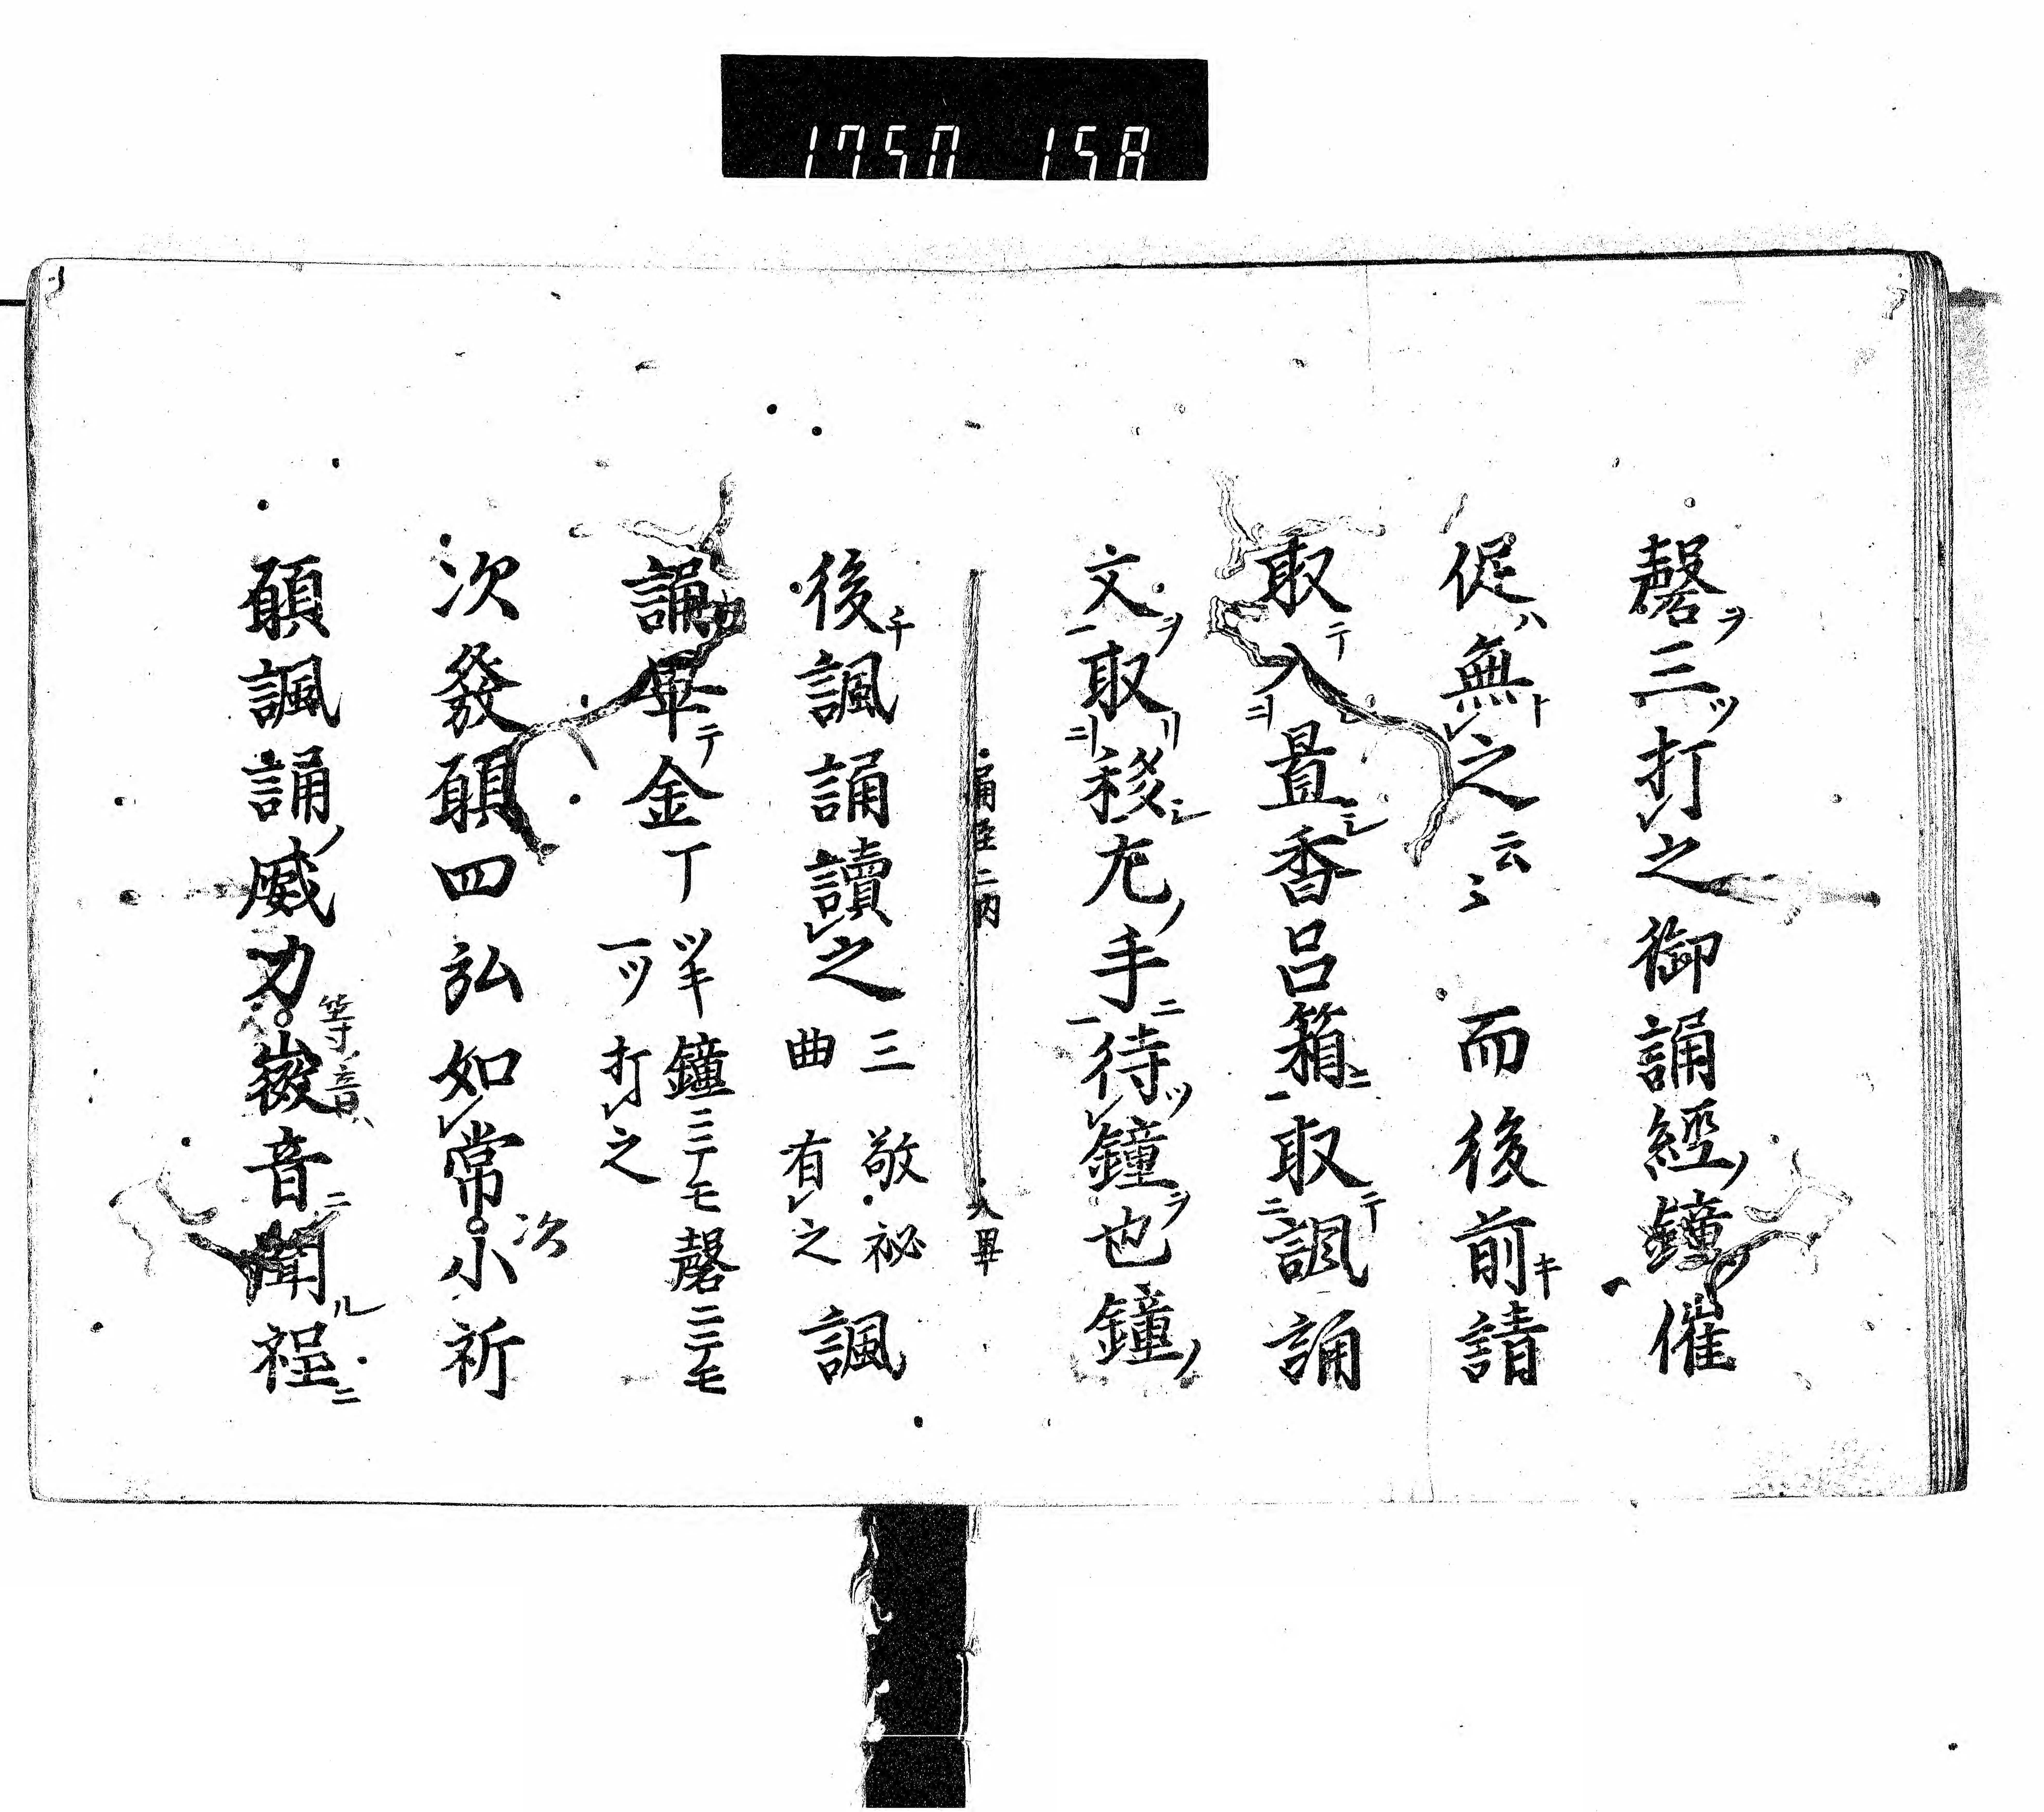 1750 158
磬ヲ三ツ打レ之御誦經ノ鐘一催
促ハ無トレ之云〻而後前キ請
取テ入置シ香呂箱ニ一取テ二諷誦
文ヲ一取リ移シ左ノ手ニ一待ツレ鐘ヲ也鐘ノ
後チ諷誦讀レ之三敬秘曲有レ之諷
誦畢テ金丁鐘ニテモ磬ニテモ一ツ打レ之
次發願四弘如レ常次小祈
願諷誦ノ威力等ノ音ハ微音ニ聞ル程ニ